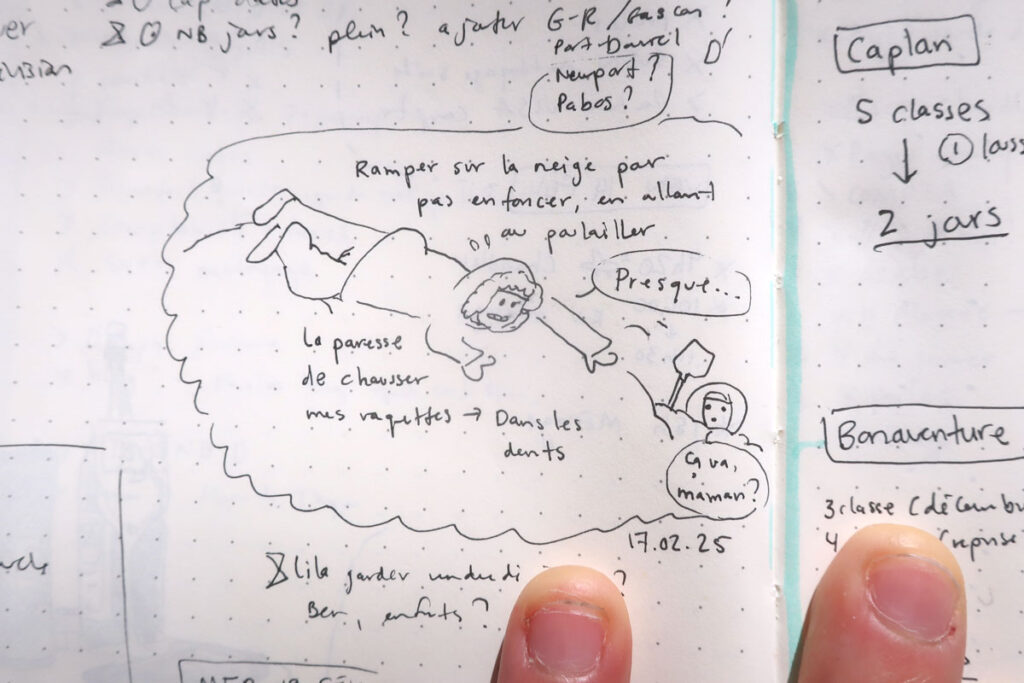 NB jars? plein? ajouter G-R/Gascon?
Port-Daniel
Newport?
Pabos?
Ramper sur la neige pour
pas enfoncer, en allant
au poulailler
Presque...
La paresse
de chausser
mes raquettes → Dans les
dents
Ça va,
maman?
17.02.25
Lila garder vendredi ?
Ber, enfants?
Caplan
5 classes
↓ ①
2 jars
Bonaventure
3 classe (décembr
4 (reponse